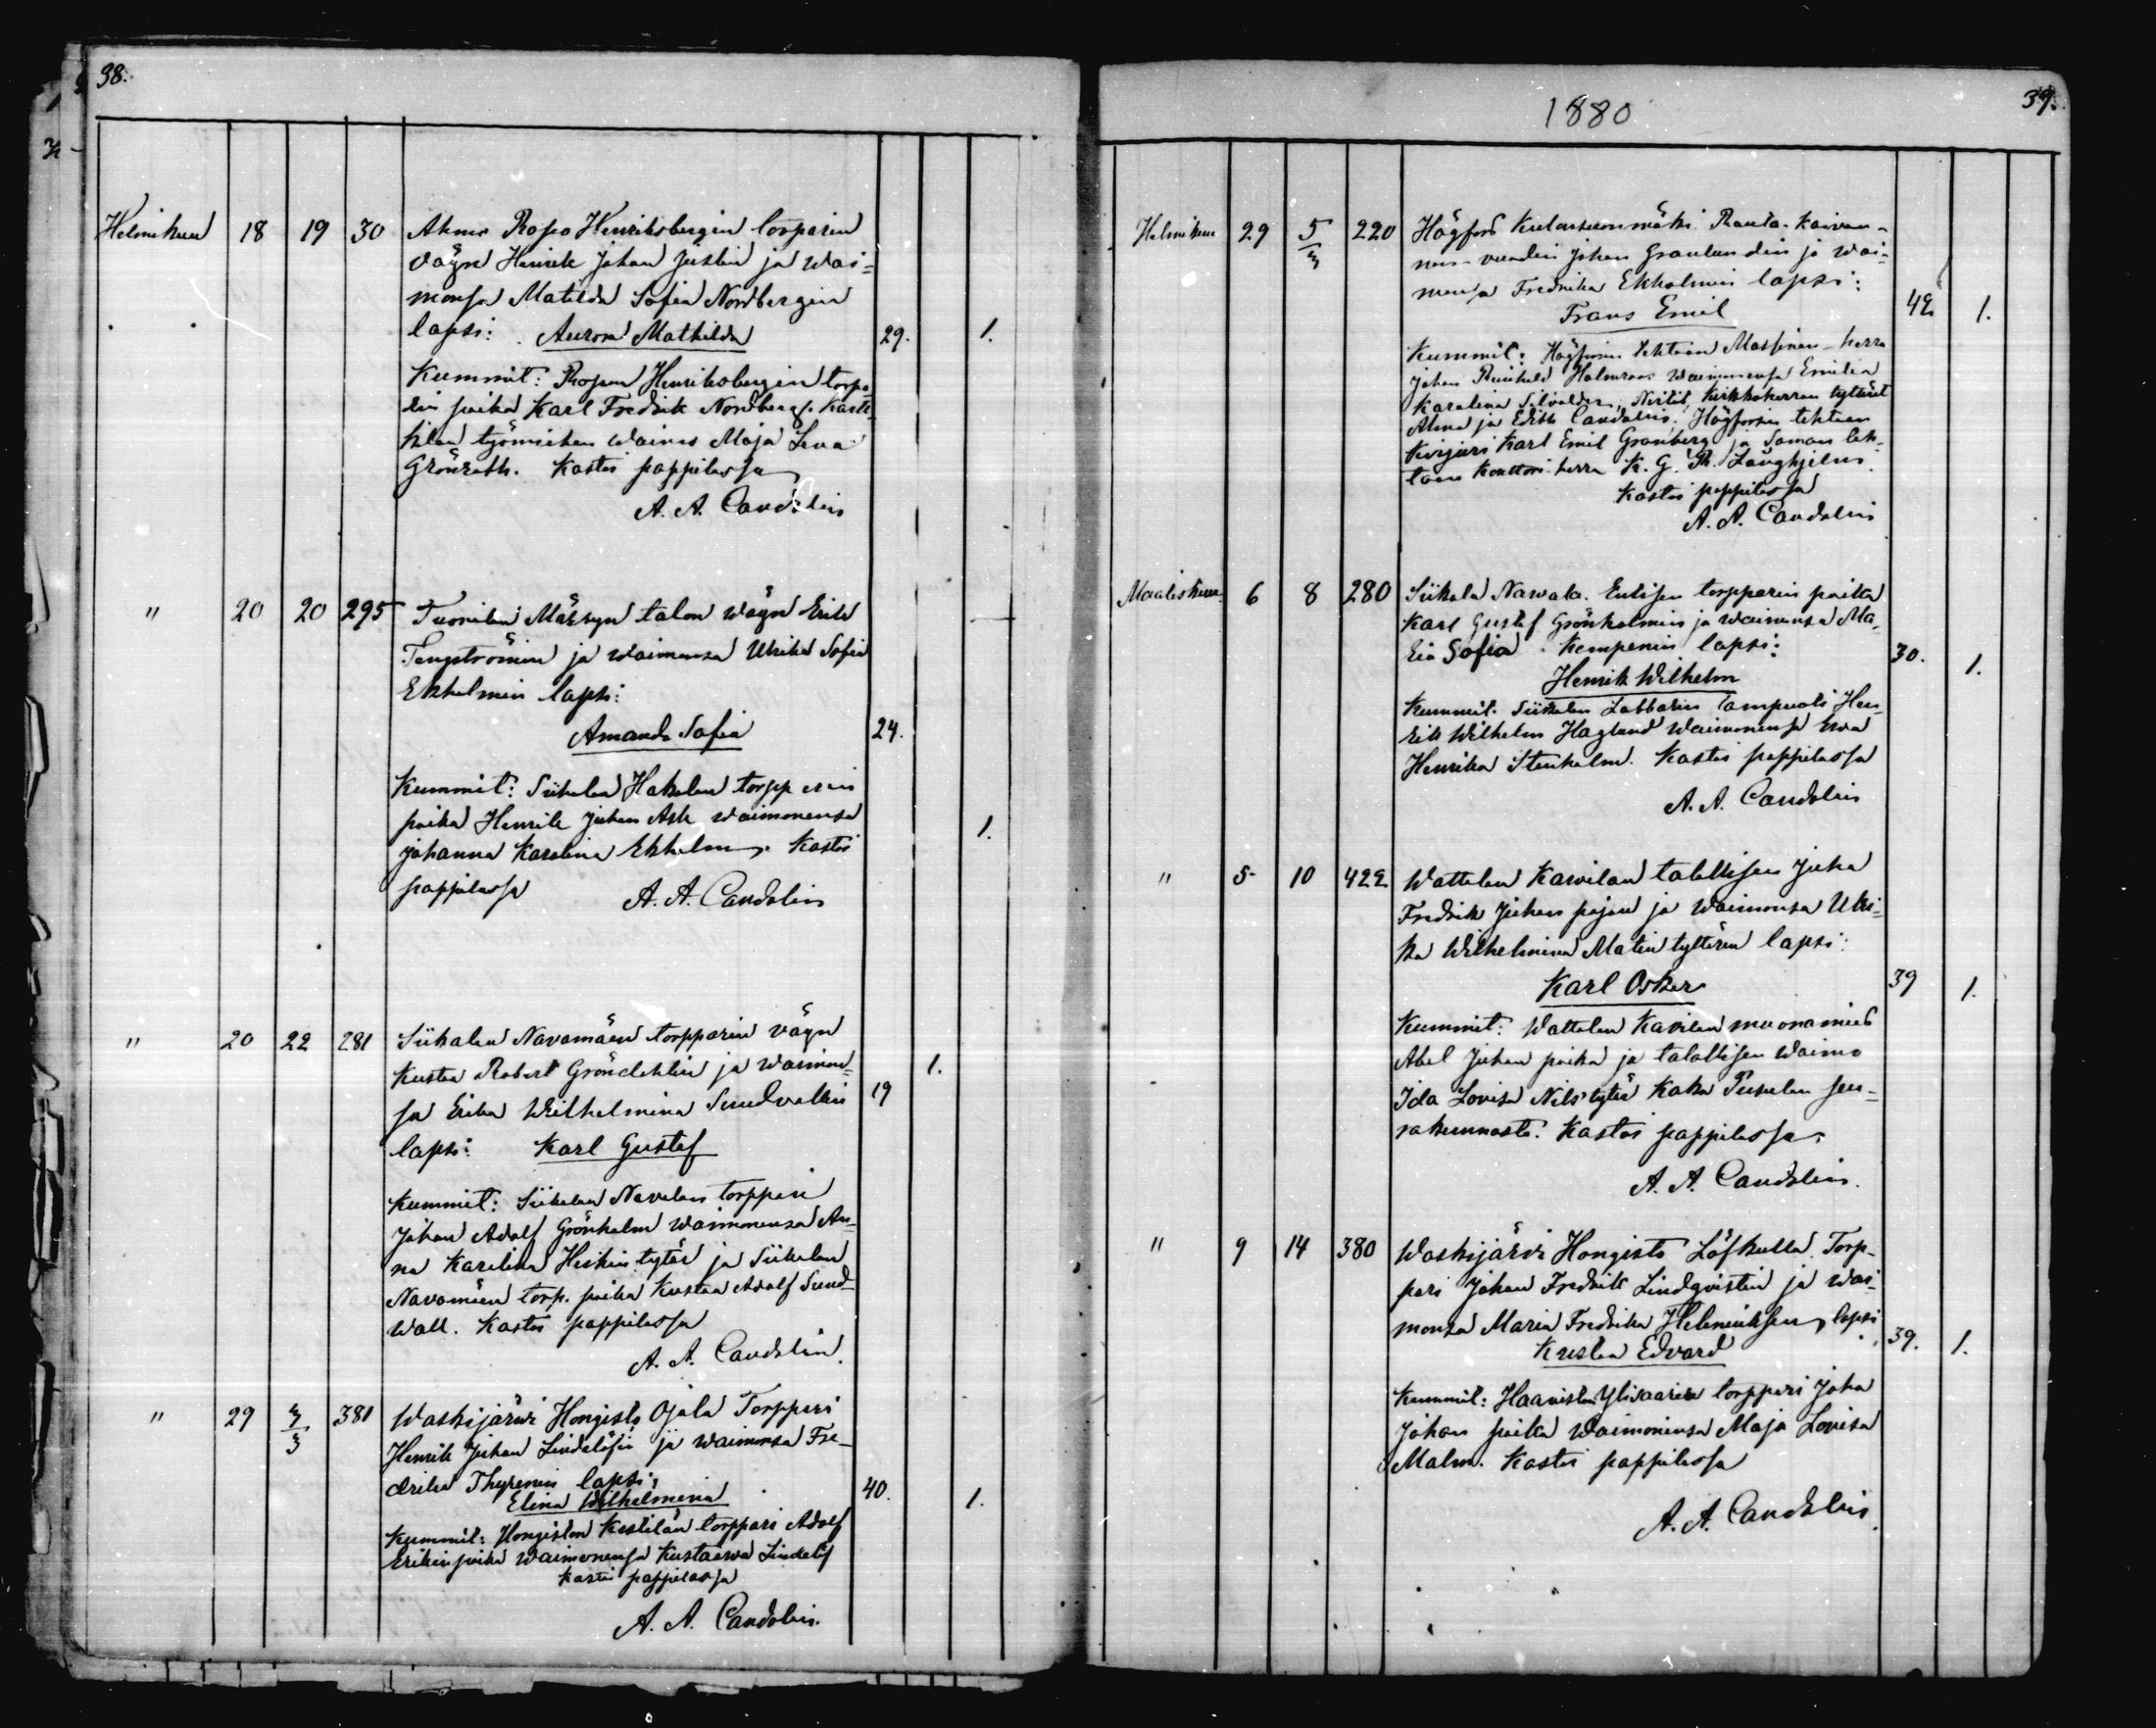 38.
Helmikuu 18 19 30 Ahmo Ropo Henriksbergin torparin
vägn Henrik Johan Juslin ja wai=
monsa Matilda Sofia Nordbergin
lapsi: Aurora Mathilda 29. 1.
Kummit: Henriksbergin torpa
rin poika Karl Fredrik Nordberg
työmiehen waimo Maja Lena
Grönroth. Kasti pappilassa
A. A. Candolin
" 20 20 295 talon vägn Erik
Tengströmin ja waimonsa Ulrika Sofia
Ekholmin lapsi:
Amanda Sofia 24.
Kummit: Siikalan Hakalan torpparin
poika Henrik Juhan Ask waimonensa
Johanna Karolina Ekholm. Kasti 1.
pappilassa A. A. Candolin
" 20 22 281 Siikalan Navamäen torpparin vägn
Kustaa Robert Gröndahlin ja waimon= 1.
sa Erika Wilhelmina Sundvallin 19
lapsi: Karl Gustaf
Kummit: Siikalan Navalan torppari
Johan Adolf Grönholm waimonensa An-
na Karolina Heikin tytär ja Siikalan
Navamäen torp. poika Kustaa Adolf Sund-
wall. Kasti pappilassa
A. A. Candolin.
" 29 3/3 381 Waskijärwi Hongisto Ojala Torppari
Henrik Juhan Lindelöfin ja waimonsa Fre-
drika Thyrenin lapsi:
Elina Wilhelmina 40. 1.
Kummit: Hongiston Kestilän torppari Adolf
Erikinpoika waimonensa Kustaawa Lindelöf
Kasti pappilassa
A. A. Candolin.
1880
39.
Helmikuu 29 5/3 220 Högfors Rauta-kaivan-
nus-voudin Johan Granlundin ja wai-
monsa Fredrika Ekholmin lapsi:
Frans Emil 42 1.
Kummit: Högforsin tehtaan Massinan-herra
Johan Reinhold waimonensa Emilia
Karolina Silvander, Neitit, Kirkkoherran tyttäret
Alma ja Edith Candolin. Högforsin tehtaan
Kirjuri Karl Emil Granberg ja saman teh-
taan Konttori-herra K. G. Th. Långhjelm.
Kasti pappilassa
A. A. Candolin
Maaliskuu 6 8 280 Siikala Nawala. Entisen torpparin poika
Karl Gustaf Grönholmin ja waimonsa Ma-
ria Sofia Kempenin lapsi: 30. 1.
Henrik Wilhelm
Kummit: Siikalan Labbarin Hen-
rik Wilhelm Haglund waimonensa Ewa
Henrika Stenholm. Kasti pappilassa
A. A. Candolin
" 5 10 422 Wattolan Kawilan talollisen Juha
Fredrik Juhan pojan ja waimonsa Ulri=
ka Wilhelmina Matin tyttären lapsi:
Karl Oskar 39 1.
Kummit: Wattolan Kavilan muonamies
Abel Juhan poika ja talollisen waimo
Ida Lovisa Nils tytär Kaka Pusulan seu-
rakunnasta. Kastoi pappilassa.
A. A. Candolin.
" 9 14 380 Waskijärvi Hongisto Löfkulla. Torp-
pari Johan Fredrik Lindqvistin ja wai-
monsa Maria Fredrika Heleniuksen lapsi
Kustaa Edvard 39. 1.
Kummit: Haaviston Ylisaaren torppari Juha
Johan poika waimonensa Maja Lovisa
Malm. Kasti pappilassa
A. A. Candolin.